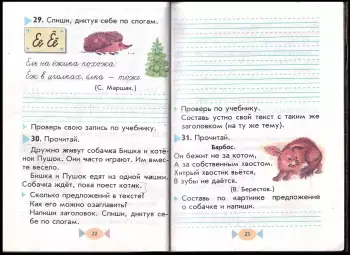 29. Спиши, диктуя себе по слогам.
Ее Ёё
Ель на ёжика похожа:
Ёж в иголках, ёлка – тоже.
(С. Маршак.)
Проверь свою запись по учебнику.
30. Прочитай.
Дружно живут собачка Бишка и котё-
нок Пушок. Они часто играют. Им вмес-
те весело.
Бишка и Пушок едят из одной чашки.
Собачка ждёт, пока поест котик.
Сколько предложений в тексте?
Как его можно озаглавить?
Напиши заголовок. Спиши, диктуя се-
бе по слогам.
22
Проверь по учебнику.
Составь устно свой текст с таким же
заголовком (на ту же тему).
31. Прочитай.
Барбос.
Он бежит не за котом,
А за собственным хвостом.
Хитрый хвостик вьётся,
В зубы не даётся.
(В. Берестов.)
Составь по картинке предложение
о собачке и напиши.
23